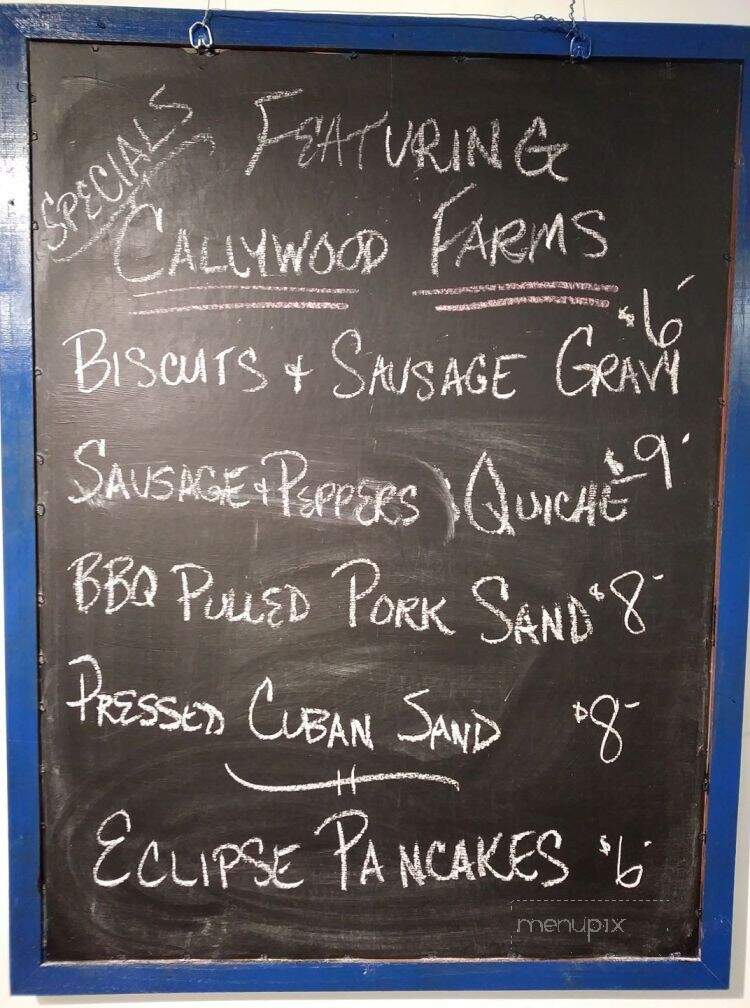 SPECIALS
FEATURING
CALLYWOOD FARMS
BISCUITS & SAUSAGE GRAVY $6
SAUSAGE & PEPPERS QUICHE $9
BBQ PULLED PORK SAND $8
PRESSED CUBAN SAND $8
ECLIPSE PANCAKES $6
menupix